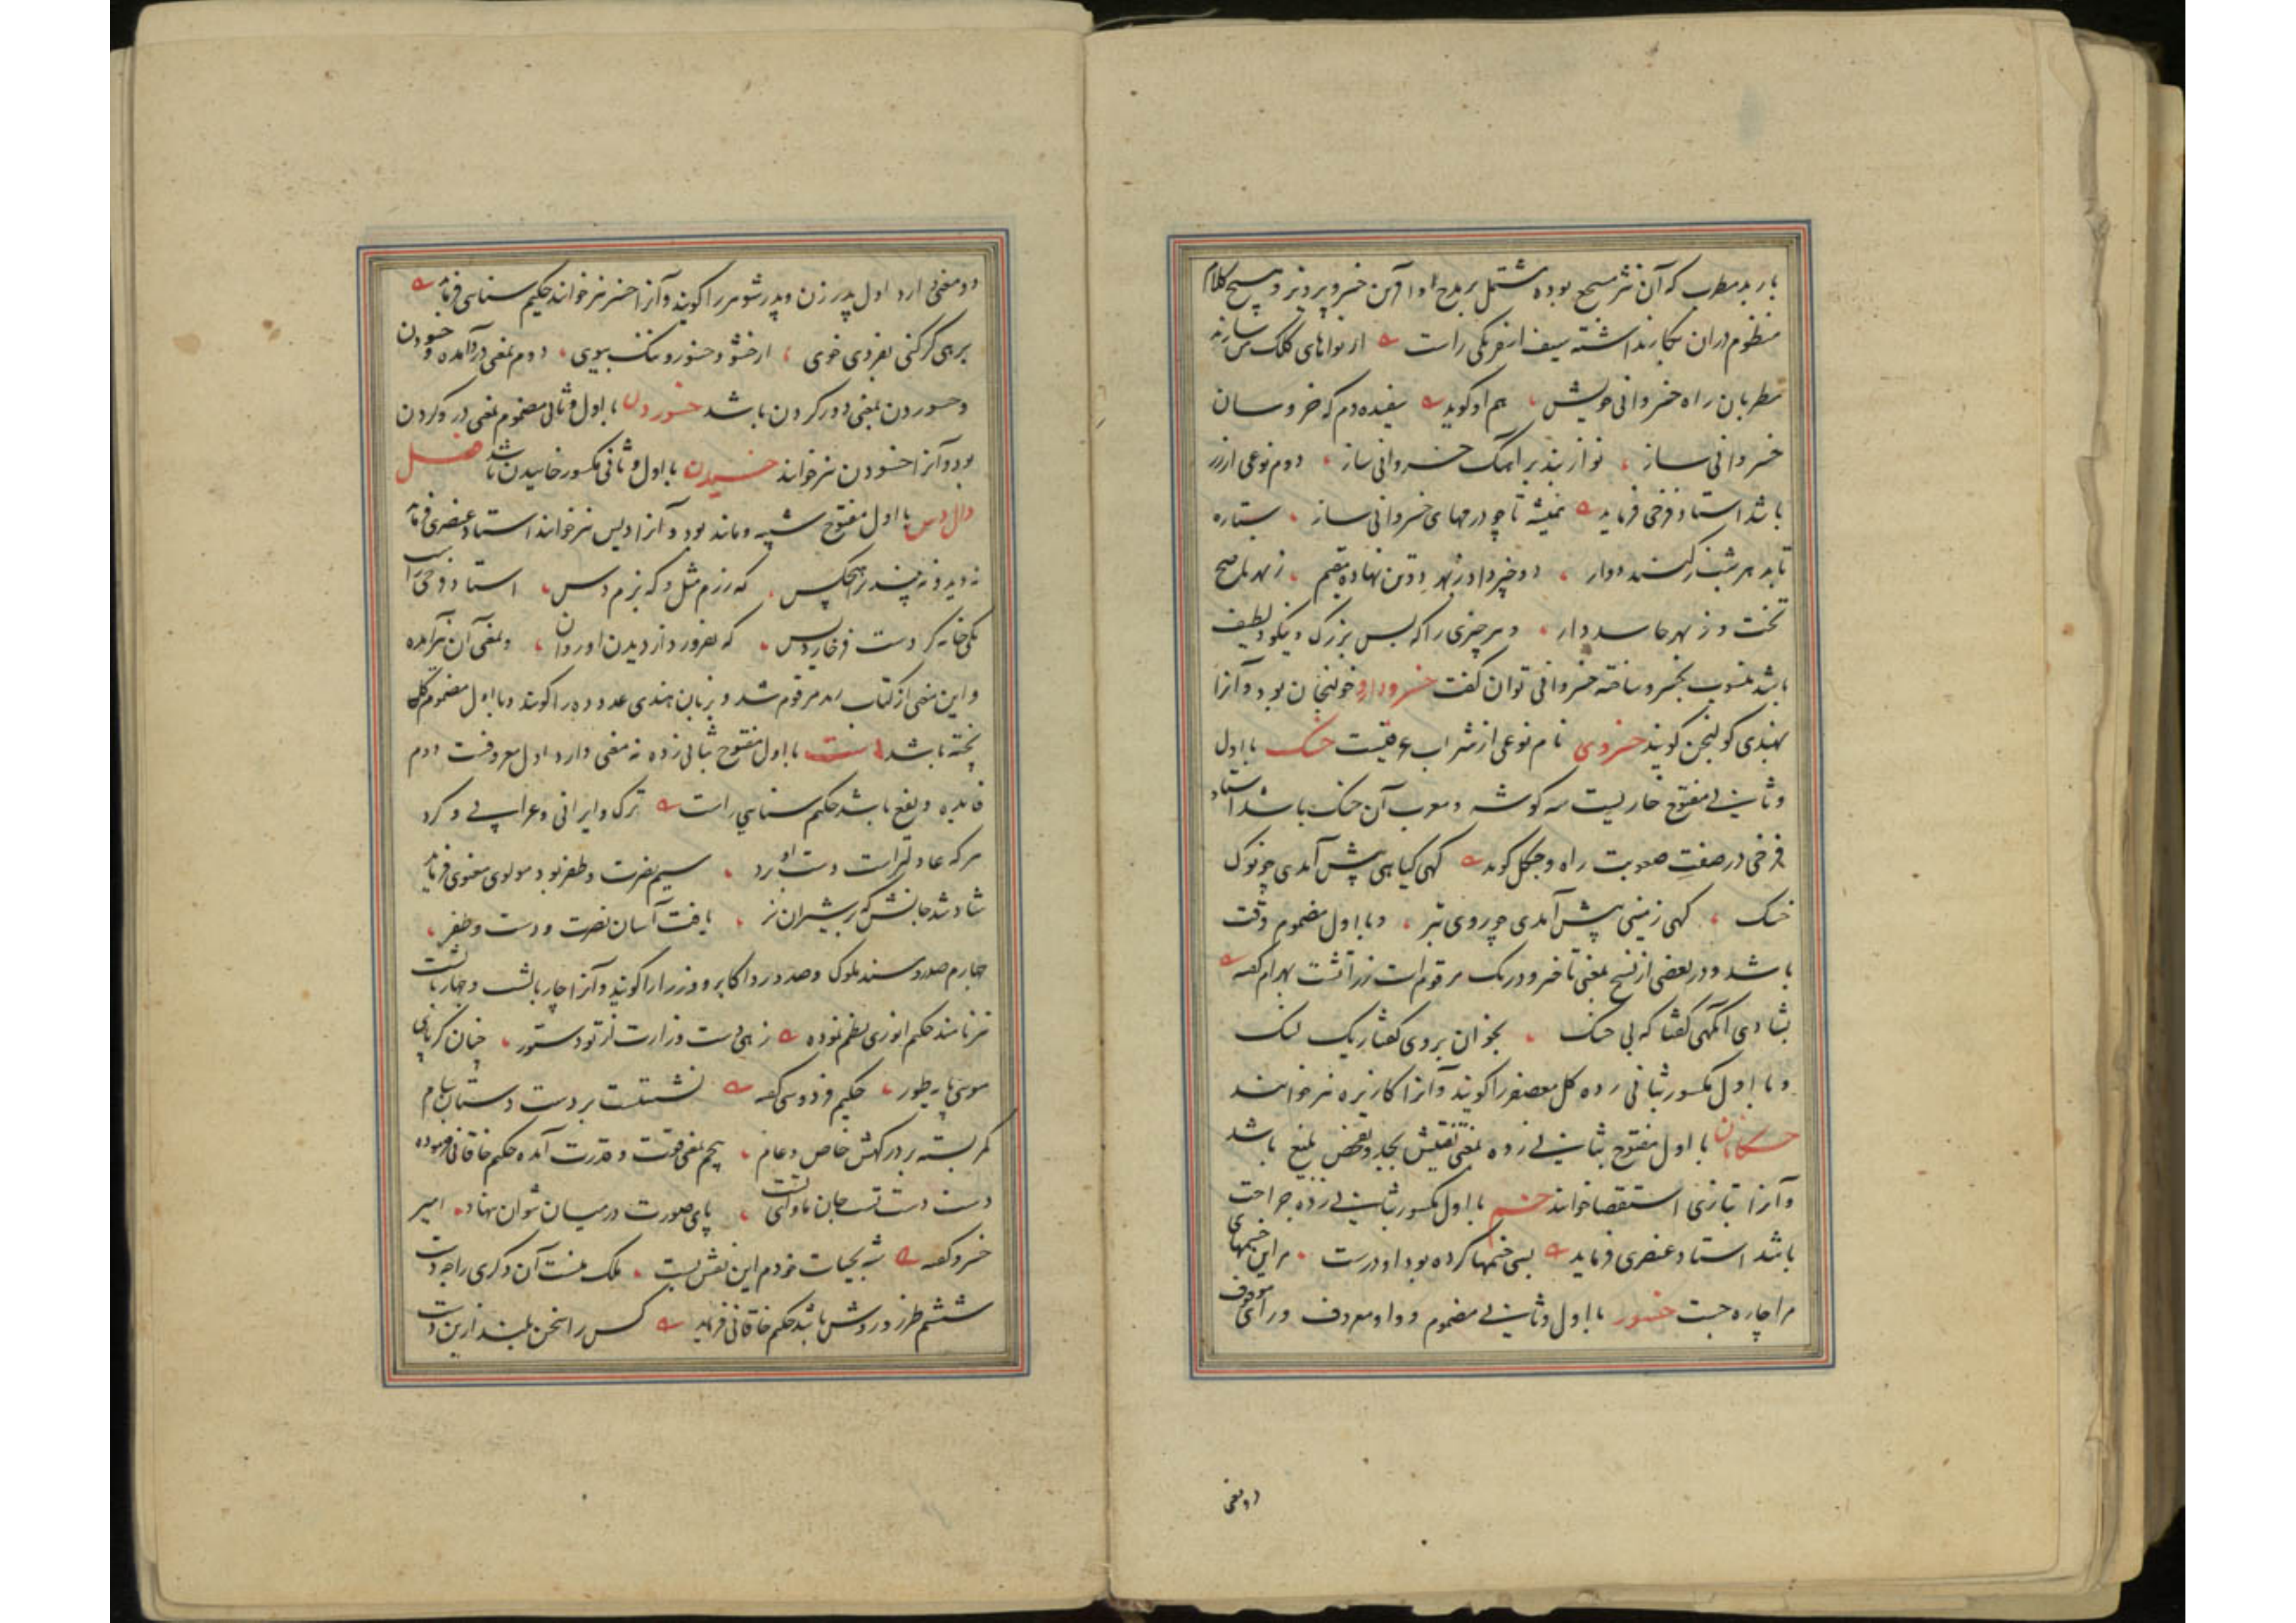 باربد مطرب که آن نثر مسجع بوده مشتمل بر مدح و آفرین خسرو پرویز و هیچ کلام
منظوم دران بکار نداشته سیف اسفرنگی راست از نواهای کلک من سازند
مطربان راه خسروانی خویش هم او گوید سفیده دم که خروسان
خسروانی ساز نوازند بر آهنگ خسروانی ساز دوم نوعی از زر
باشد استاد فرخی فرماید همیشه تا چو درمهای خسروانی ساز ستاره
تابد هر شب ز کنبد دوار دو خیر دادن نهاده مقیم ز بهر ناصح
تخت و ز بهر حاسد دار و هر چیزی را که بس بزرک و نیکو و لطیف
باشد منسوب بخسرو ساخته خسروانی توان گفت خسرودارو خولنجان بود و آنرا
بهندی کولنجن گویند خسروی نام نوعی از شراب عقیقیست خسک با اول
و ثانی مفتوح خاریست سه گوشه و معرب آن حسک باشد استاد
فرخی در صفت صعوبت راه و جنگل گوید گهی گیاهی پیش آمدی چو نوک
خسک گهی زمینی پیش آمدی چو روی تبر و با اول مضموم دقت
باشد و در بعضی از نسخ بمعنی تأخر و درنک مرقوم است زراتشت بهرام گفته
بشادی آنگهی گفتا که بی خسک بخوان بر وی گفتار یک لنک
و با اول مکسور بثانی زده گل معصفر را گویند و آنرا کازیره نیز خوانند
خسکانان با اول مفتوح بثانی زده بمعنی تفتیش بجد و تفحص بلیغ باشد
و آنرا بتازی استقصا خوانند خسم با اول مکسور بثانی زده جراحت
باشد استاد عنصری فرماید بسی خسمها کرده بود او درست مر این خسمهای
مرا چاره جست خسور با اول و ثانی مضموم و واو معروف و رای موقوف
دو معنی
دو معنی دارد اول پدر زن و پدر شوهر را گویند و آنرا خسر نیز خوانند حکیم سنایی فرماید
برهی گر کنی بفردی خوی از خشو و خسور و ننک بیوی دوم بمعنی درآمده و خسودن
و خسوردن بمعنی دور کردن باشد خسوردن با اول و ثانی مضموم بمعنی درو کردن
بود و آنرا خسودن نیز خوانند خسیدن با اول و ثانی مکسور خاییدن باشد فصل
دال دس با اول مفتوح شبیه و مانند بود و آنرا دیس نیز خوانند استاد عنصری فرماید
ندید و نه بیند ترا هیچکس که رزم مثل و که بزم دس استاد فرخی راست
یکی خانه کرد است فرخاردیس که بفروزد از دیدن او روان و بمعنی آن نیز آمده
و این معنی از کتاب مرقوم شد و بزبان هندی عدد ده را گویند و با اول مضموم گل
پخته باشد دست با اول مفتوح بثانی زده نه معنی دارد اول معروفست دوم
فایده و نفع باشد حکیم سنایی راست ترک و ایرانی و عرابی و کرد
هر که عادلتر است دست او برد سیم نصرت و ظفر بود مولوی معنوی فرماید
شاد شد جانش که بر شیران نر یافت آسان نصرت و دست و ظفر
چهارم صدر و مسند ملوک و صدور و اکابر و وزرا را گویند و آنرا چاربالش و چهاربالشت
نیز نامند حکیم انوری نظم نموده زهی دست وزارت از تو دستور چنان کز پای
موسی پایه طور حکیم فردوسی گفته نشست بر دست دستان سام
کمر بسته بر درگهش خاص و عام پنجم بمعنی قوت و قدرت آمده حکیم خاقانی فرموده
دست دست تست جان ماوای تست پای صورت در میان نتوان نهاد امیر
خسرو گفته نه بحیات خودم این نقش بست ملک منست آن دگری را چه دست
ششم طرز و روش باشد حکیم خاقانی فرماید کس را سخن بلند ازین دست